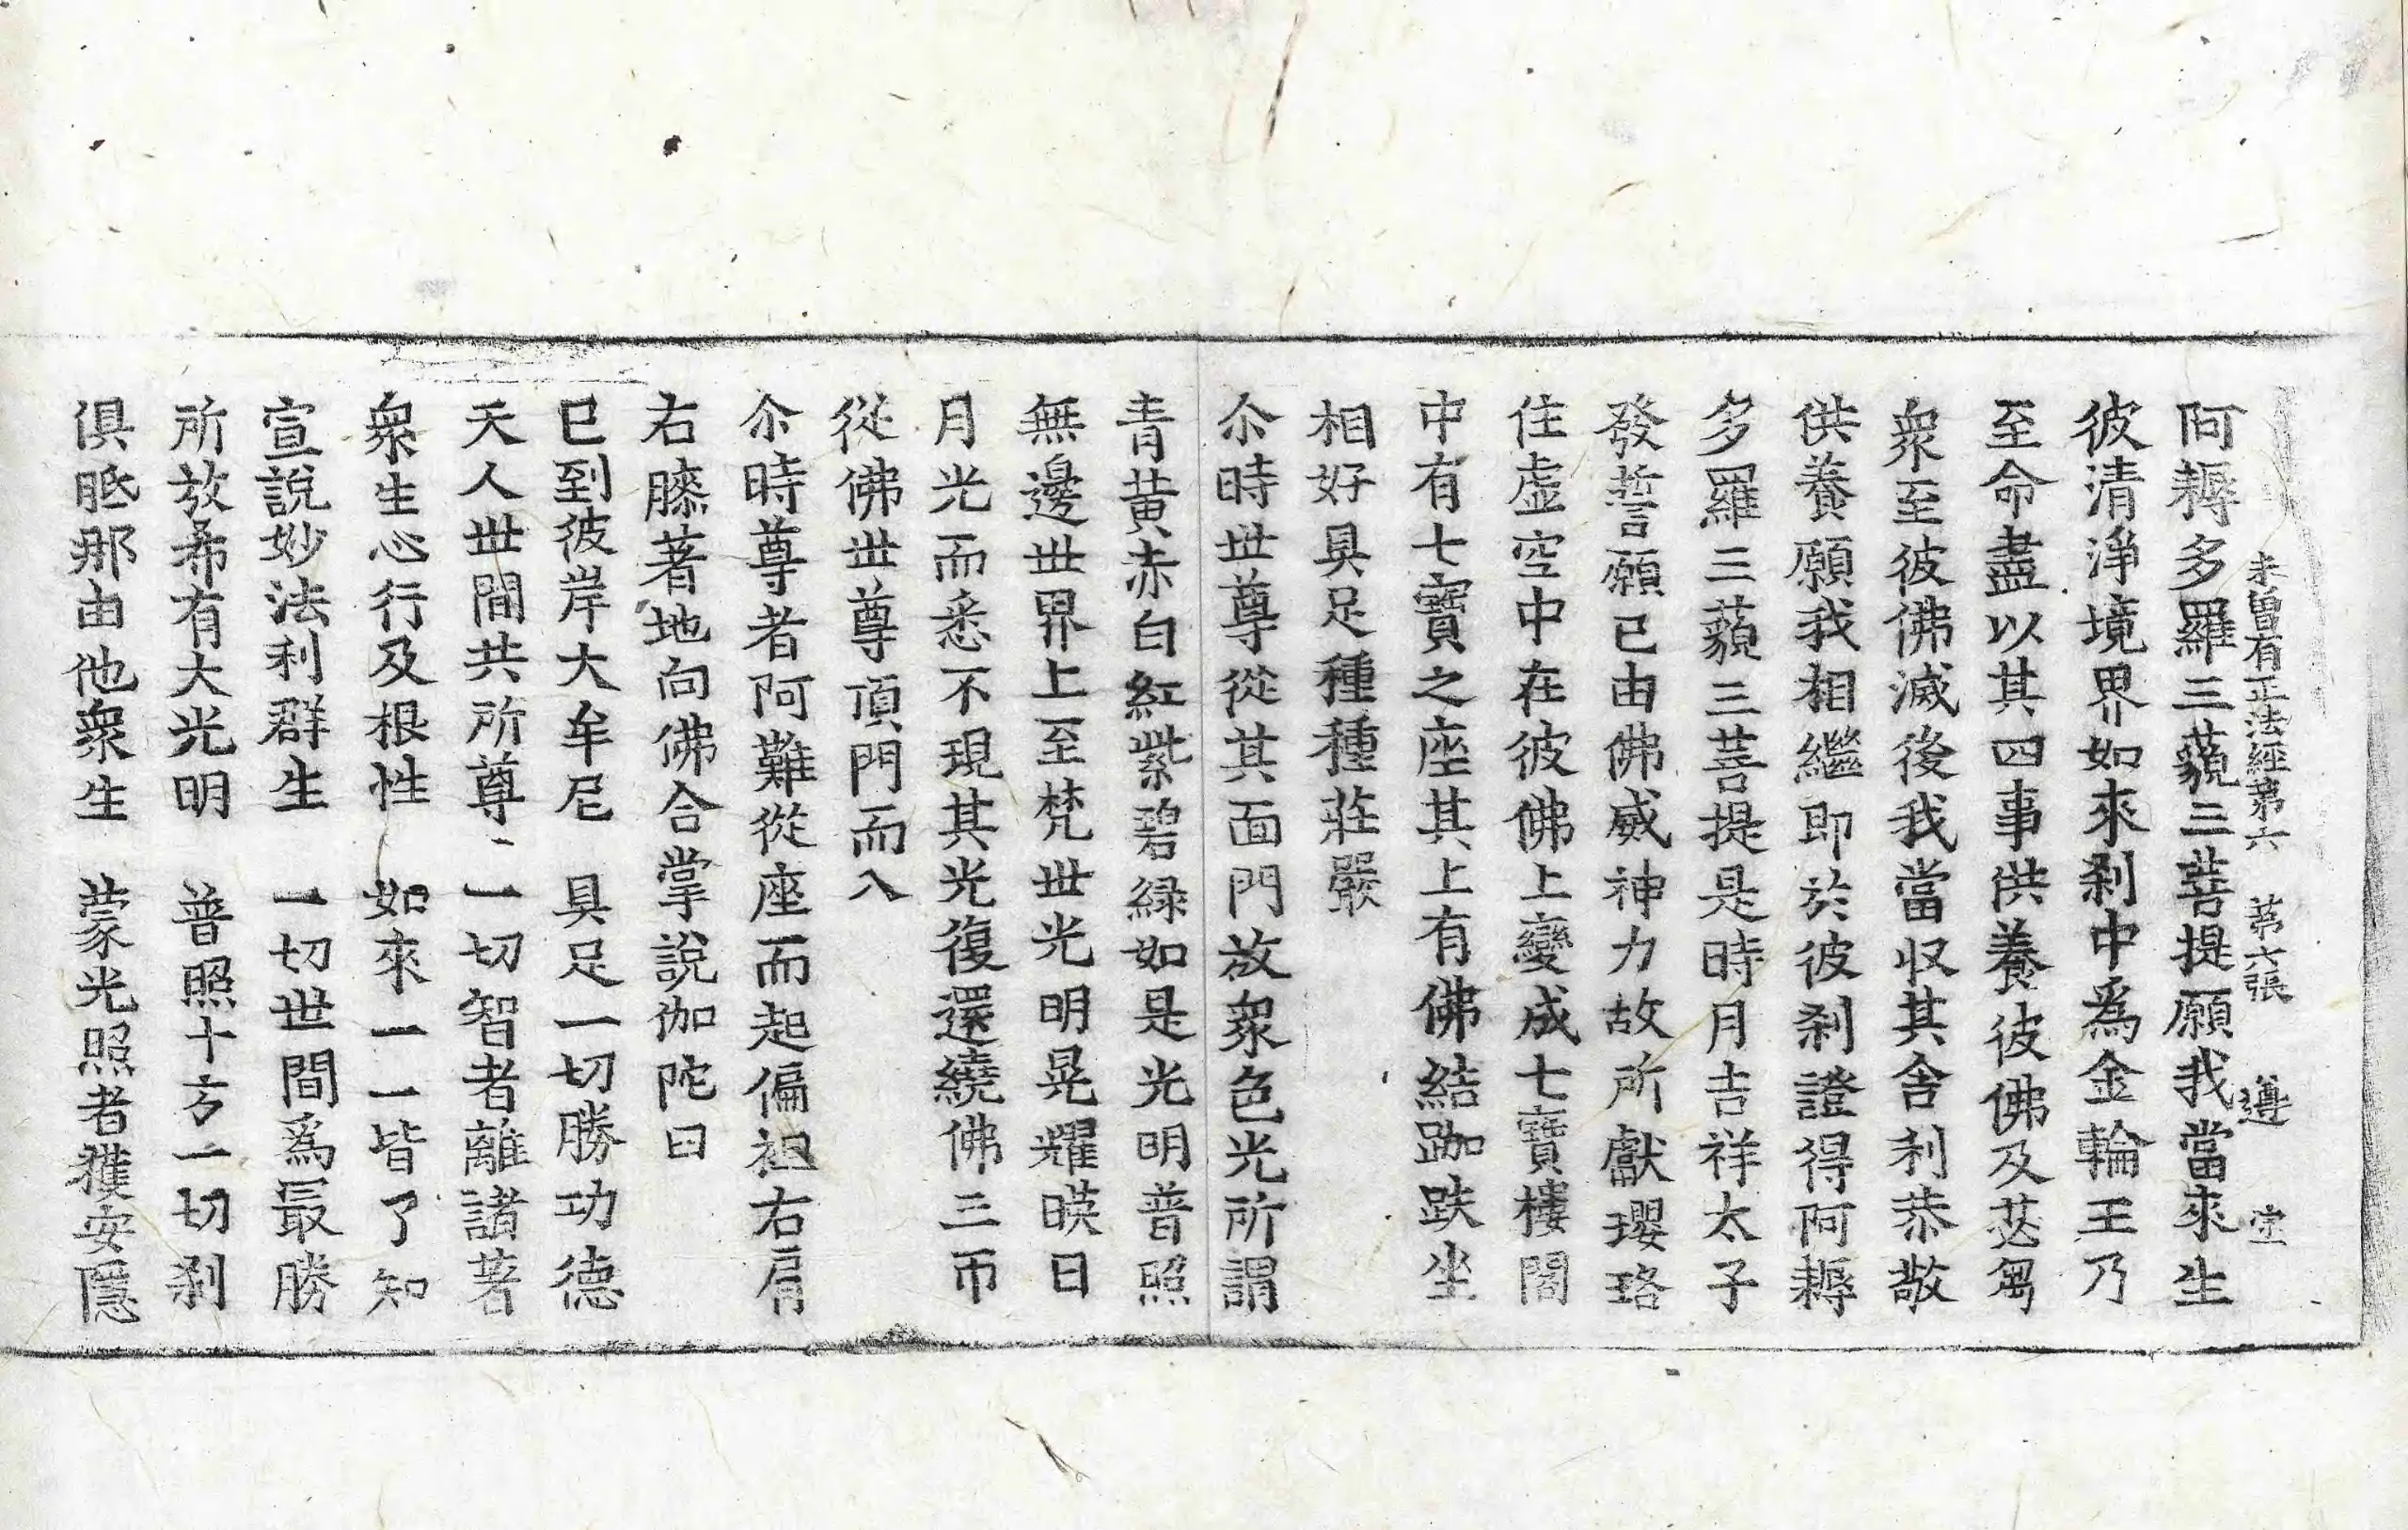 未曾有正法經第六 第六張 遵 宝
阿耨多羅三藐三菩提願我當來生
彼清淨境界如來刹中爲金輪王乃
至命盡以其四事供養彼佛及苾芻
衆至彼佛滅後我當収其舍利恭敬
供養願我相繼即於彼刹證得阿耨
多羅三藐三菩提是時月吉祥太子
發誓願已由佛威神力故所獻瓔珞
住虛空中在彼佛上變成七寶樓閣
中有七寶之座其上有佛結跏趺坐
相好具足種種莊嚴
尒時世尊從其面門放衆色光所謂
青黃赤白紅紫碧緑如是光明普照
無邊世界上至梵世光明晃耀暎日
月光而悉不現其光復還繞佛三帀
從佛世尊頂門而入
尒時尊者阿難從座而起偏袒右肩
右膝著地向佛合掌說伽陀曰
已到彼岸大牟尼 具足一切勝功德
天人世間共所尊 一切智者離諸著
衆生心行及根性 如來一一皆了知
宣說妙法利群生 一切世間爲最勝
所放希有大光明 普照十方一切刹
俱胝那由他衆生 蒙光照者獲安隱